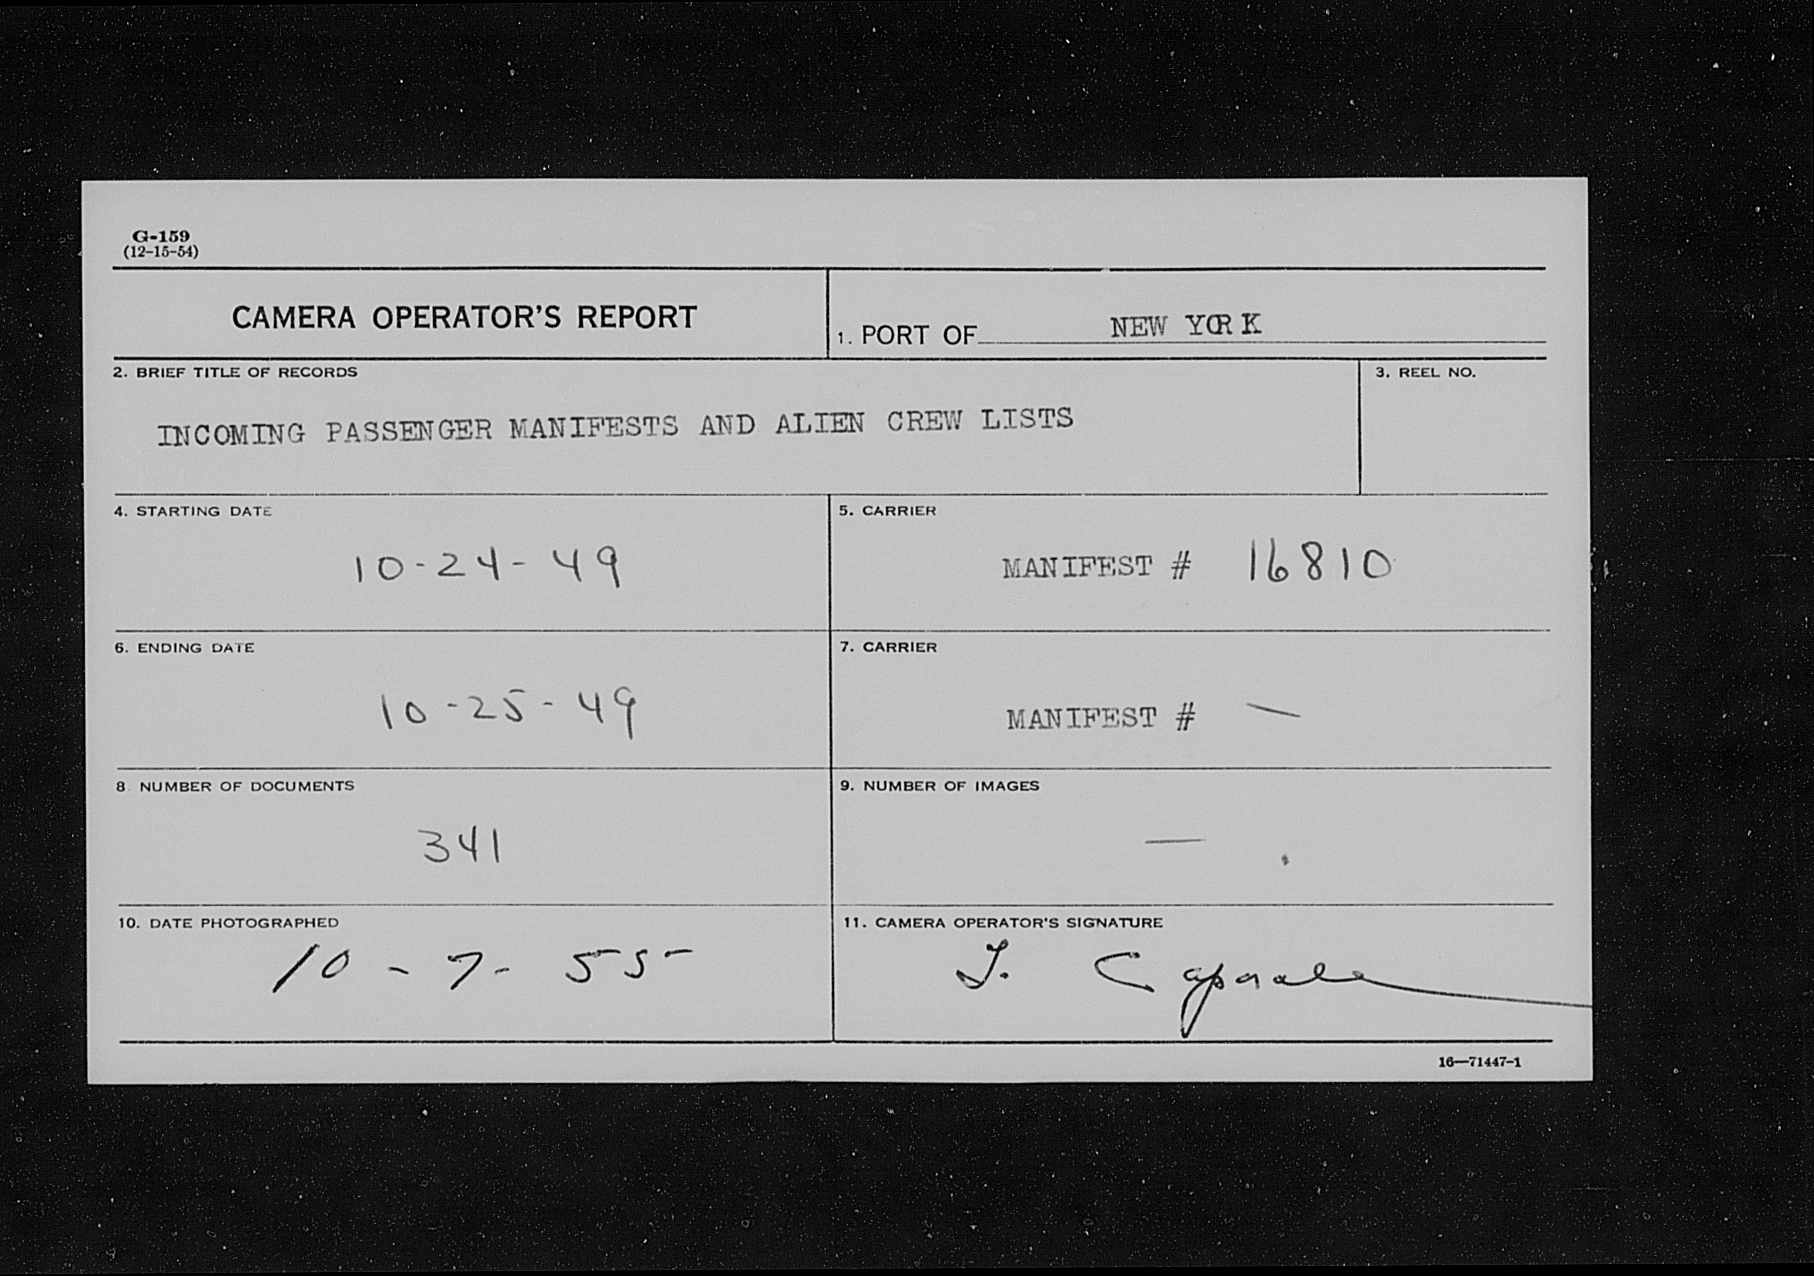 G-159
(12-15-54)
CAMERA OPERATOR'S REPORT
1. PORT OF NEW YORK
2. BRIEF TITLE OF RECORDS
3. REEL NO.
INCOMING PASSENGER MANIFESTS AND ALIEN CREW LISTS
4. STARTING DATE
5. CARRIER
10-24-49
MANIFEST # 16810
6. ENDING DATE
7. CARRIER
10-25-49
MANIFEST # —
8 NUMBER OF DOCUMENTS
9. NUMBER OF IMAGES
341
— .
10. DATE PHOTOGRAPHED
11. CAMERA OPERATOR'S SIGNATURE
10-7-55
16—71447-1